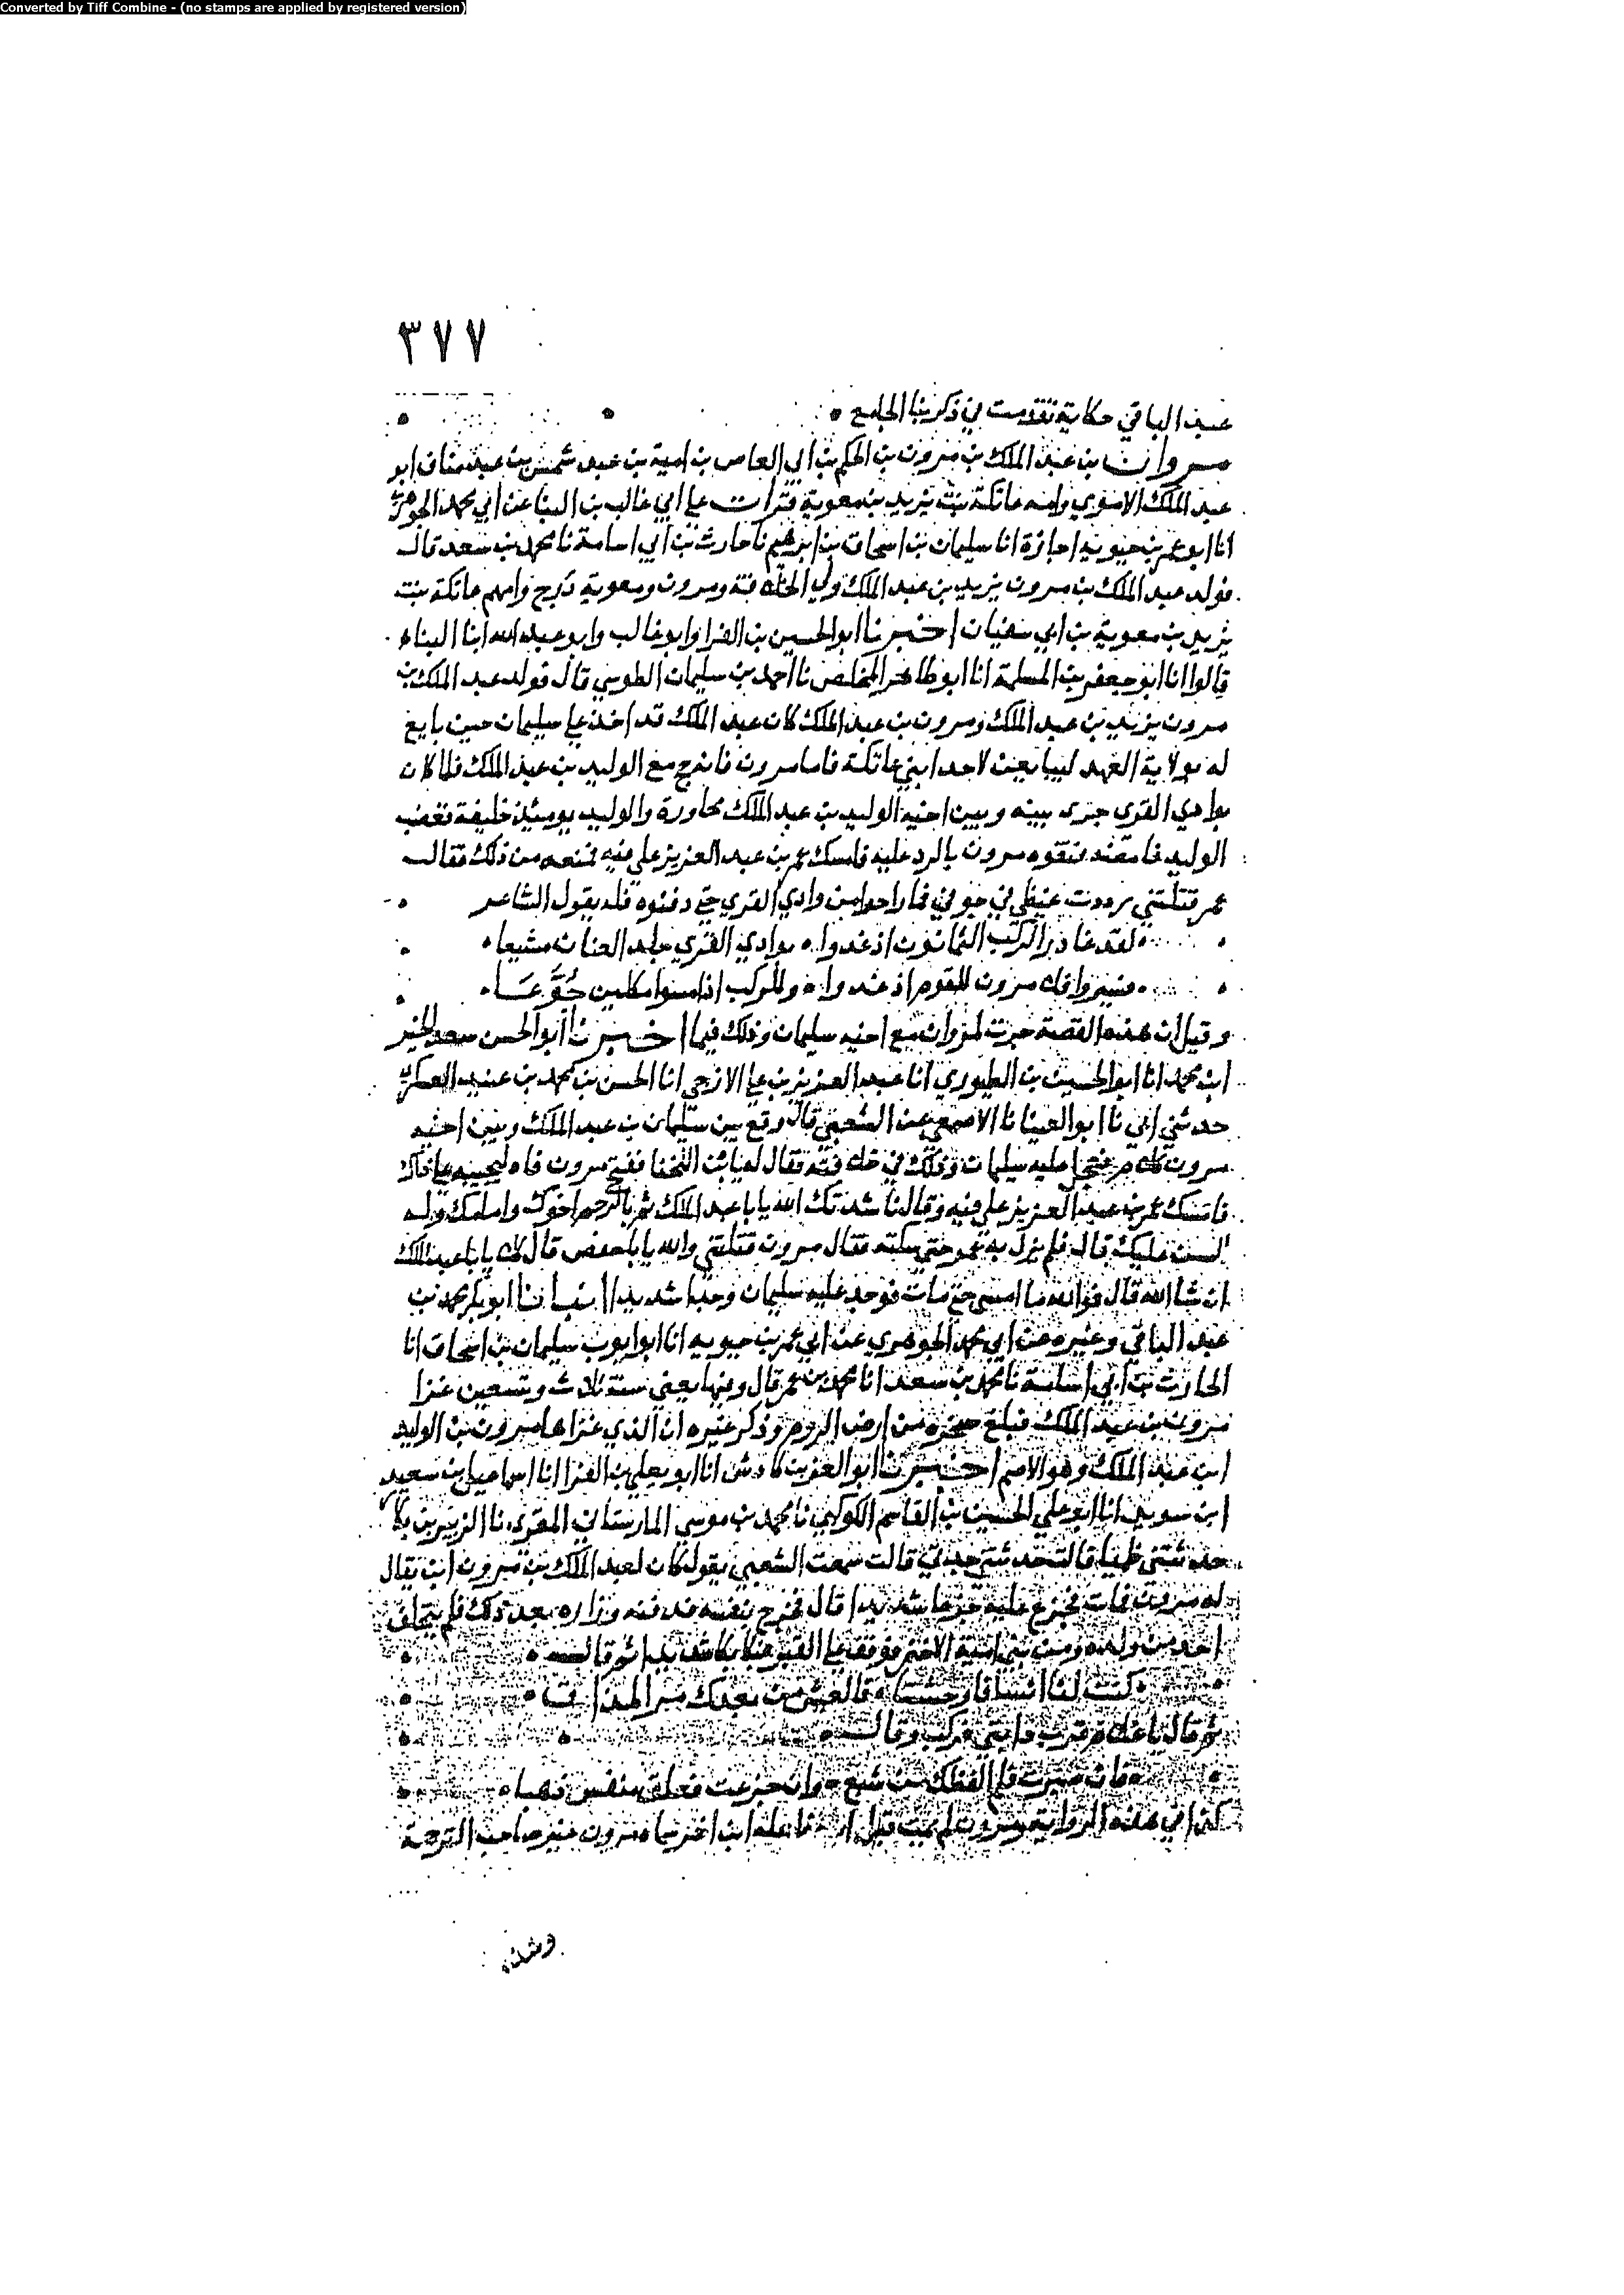 Converted by Tiff Combine - (no stamps are applied by registered version)
٣٧٧
عبد الباقي حكاية تقدمت في ذكر بنا الجامع
مروان بن عبد الملك بن مرون بن الحكم بن ابي العاص بن امية بن عبد شمس بن عبد مناف ابو
عبد الملك الاموي وامه عاتكة بنت يزيد بن معوية قرات على ابي غالب بن البنا عن ابي محمد الجوهري
انا ابو عمر بن حيويه اجازة انا سليمان بن اسحاق بن ابرهيم نا حارث بن ابي اسامة نا محمد بن سعد قال
فولد عبد الملك بن مرون يزيد بن عبد الملك ولي الخلافة ومرون ومعوية درج وامهم عاتكة بنت
يزيد بن معوية بن ابي سفيان اخبرنا ابو الحسين بن الفرا وابو غالب وابو عبد الله ابنا البناء
قالوا انا ابو جعفر بن المسلمة انا ابو طاهر المخلص نا احمد بن سليمان الطوسي قال فولد عبد الملك بن
مرون يزيد بن عبد الملك ومرون بن عبد الملك كان عبد الملك قد اخذ على سليمان حين بايع
له بولاية العهد ليبايعن لاحد ابني عاتكة فاما مرون فانه حج مع الوليد بن عبد الملك فلما كان
بوادي القرى جرى بينه وبين اخيه الوليد بن عبد الملك محاورة والوليد يومئذ خليفة فغضب
الوليد فامصه فتفوه مرون بالرد عليه فامسك عمر بن عبد العزيز على فيه فمنعه من ذلك فقال
عمر قتلتني رددت غيظي في جوفي فما راحوا من وادي القرى حتى دفنوه فله يقول الشاعر
لقد غادر الركب الثمانون اذ غدوا بوادي القرى جلد العنان مشيعا
فسيروا فلا مرون للقوم اذ غدوا وللركب اذ امسوا مكلين جوعا
وقيل ان هذه القصة جرت لمروان مع اخيه سليمان وذلك فيما اخبرنا ابو الحسن سعد الخير
ابن محمد انا ابو الحسين بن الطيوري انا عبد العزيز بن علي الازجي انا الحسن بن محمد بن عبيد العسكري
حدثني ابي نا ابو العينا نا الاصمعي عن الشعبي قال وقع بين سليمان بن عبد الملك وبين اخيه
مرون كلام فعجل عليه سليمان وذلك في خلافته فقال له يا ابن اللخنا ففتح مرون فاه ليجيبه على ذاك
فامسك عمر بن عبد العزيز على فيه وقال نا شدتك الله يا با عبد الملك ثم بالرحم اخوك وامامك وله
السن عليك قال فلم يزل به عمر حتى سكته فقال مرون قتلتني والله يا با حفص قال كلا يا با عبد الملك
ان شا الله قال فوالله ما امسى حتى مات فوجد عليه سليمان وجدا شديدا انبانا ابو بكر محمد بن
عبد الباقي وغيره عن ابي محمد الجوهري عن ابي عمر بن حيويه انا ابو ايوب سليمان بن اسحاق انا
الحارث بن ابي اسامة نا محمد بن سعد انا محمد بن عمر قال وفيها يعني سنة ثلاث وتسعين غزا
مرون بن عبد الملك فبلغ حنجره من ارض الروم وذكر غيره ان الذي غزاها مرون بن الوليد
ابن عبد الملك وهو الاصم اخبرنا ابو العز بن كادش انا ابو يعلى بن الفرا انا اسماعيل بن سعيد
ابن سويد انا ابو علي الحسين بن القاسم الكوكبي نا محمد بن موسى المارستاني المقرئ نا الزبير بن بكار
حدثتني ظميا قالت حدثتني جدتي قالت سمعت الشعبي يقول كان لعبد الملك بن مرون ابن يقال
له مرون فمات فجزع عليه جزعا شديدا قال فخرج بنفسه فدفنه وزاره بعد ذلك فلم يتخلف
احد من ولده ومن بني امية الا حضر فوقف على القبر فبكا بكا شديدا ثم قال
كنت لنا انسا فاوحشتنا فالعيش من بعدك مر المذاق
ثم قال يا غلام قرب دابتي فركب وقال
فان صبرت فلم الفظك من شبع وان جزعت فعلق منفس ذهبا
كذا في هذه الرواية ومرون لم يمت قبل ابيه فلعله ابن اخر سماه مرون غير صاحب الترجمة